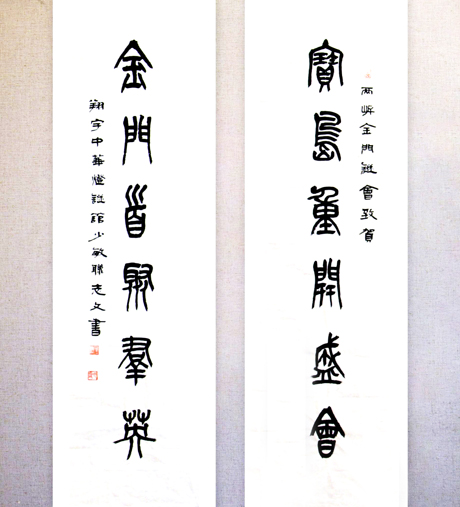 兩岸金門謎會致賀
寶島重開盛會
金門首聚羣英
翔宇中華燈謎館少敏聯志文書